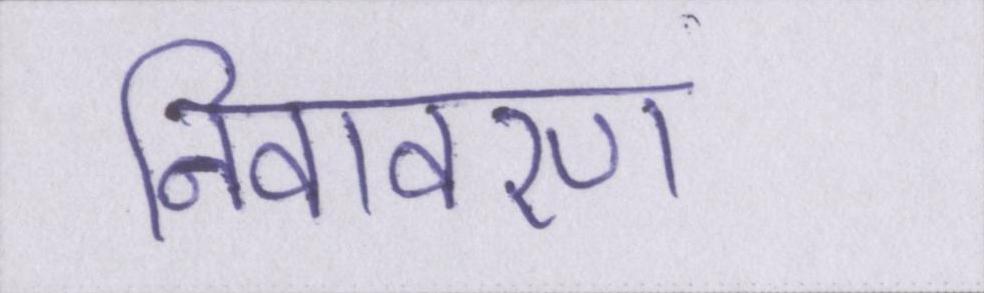 निवावरण